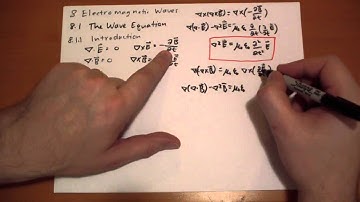 8 Electromagnetic Waves
8.1 The Wave Equation
8.1.1 Introduction
∇·E⃗ = 0   ∇×E⃗ = -∂B⃗/∂t
∇·B⃗ = 0   ∇×B⃗
∇×(∇×E⃗) = ∇×(-∂B⃗/∂t)
∇(∇·E⃗) - ∇²E⃗ =
∇²E⃗ = μ₀ε₀ ∂²/∂t² E⃗
∇×(∇×B⃗) = μ₀ε₀ ∇×(
∇(∇·B⃗) - ∇²B⃗ = μ₀ε₀